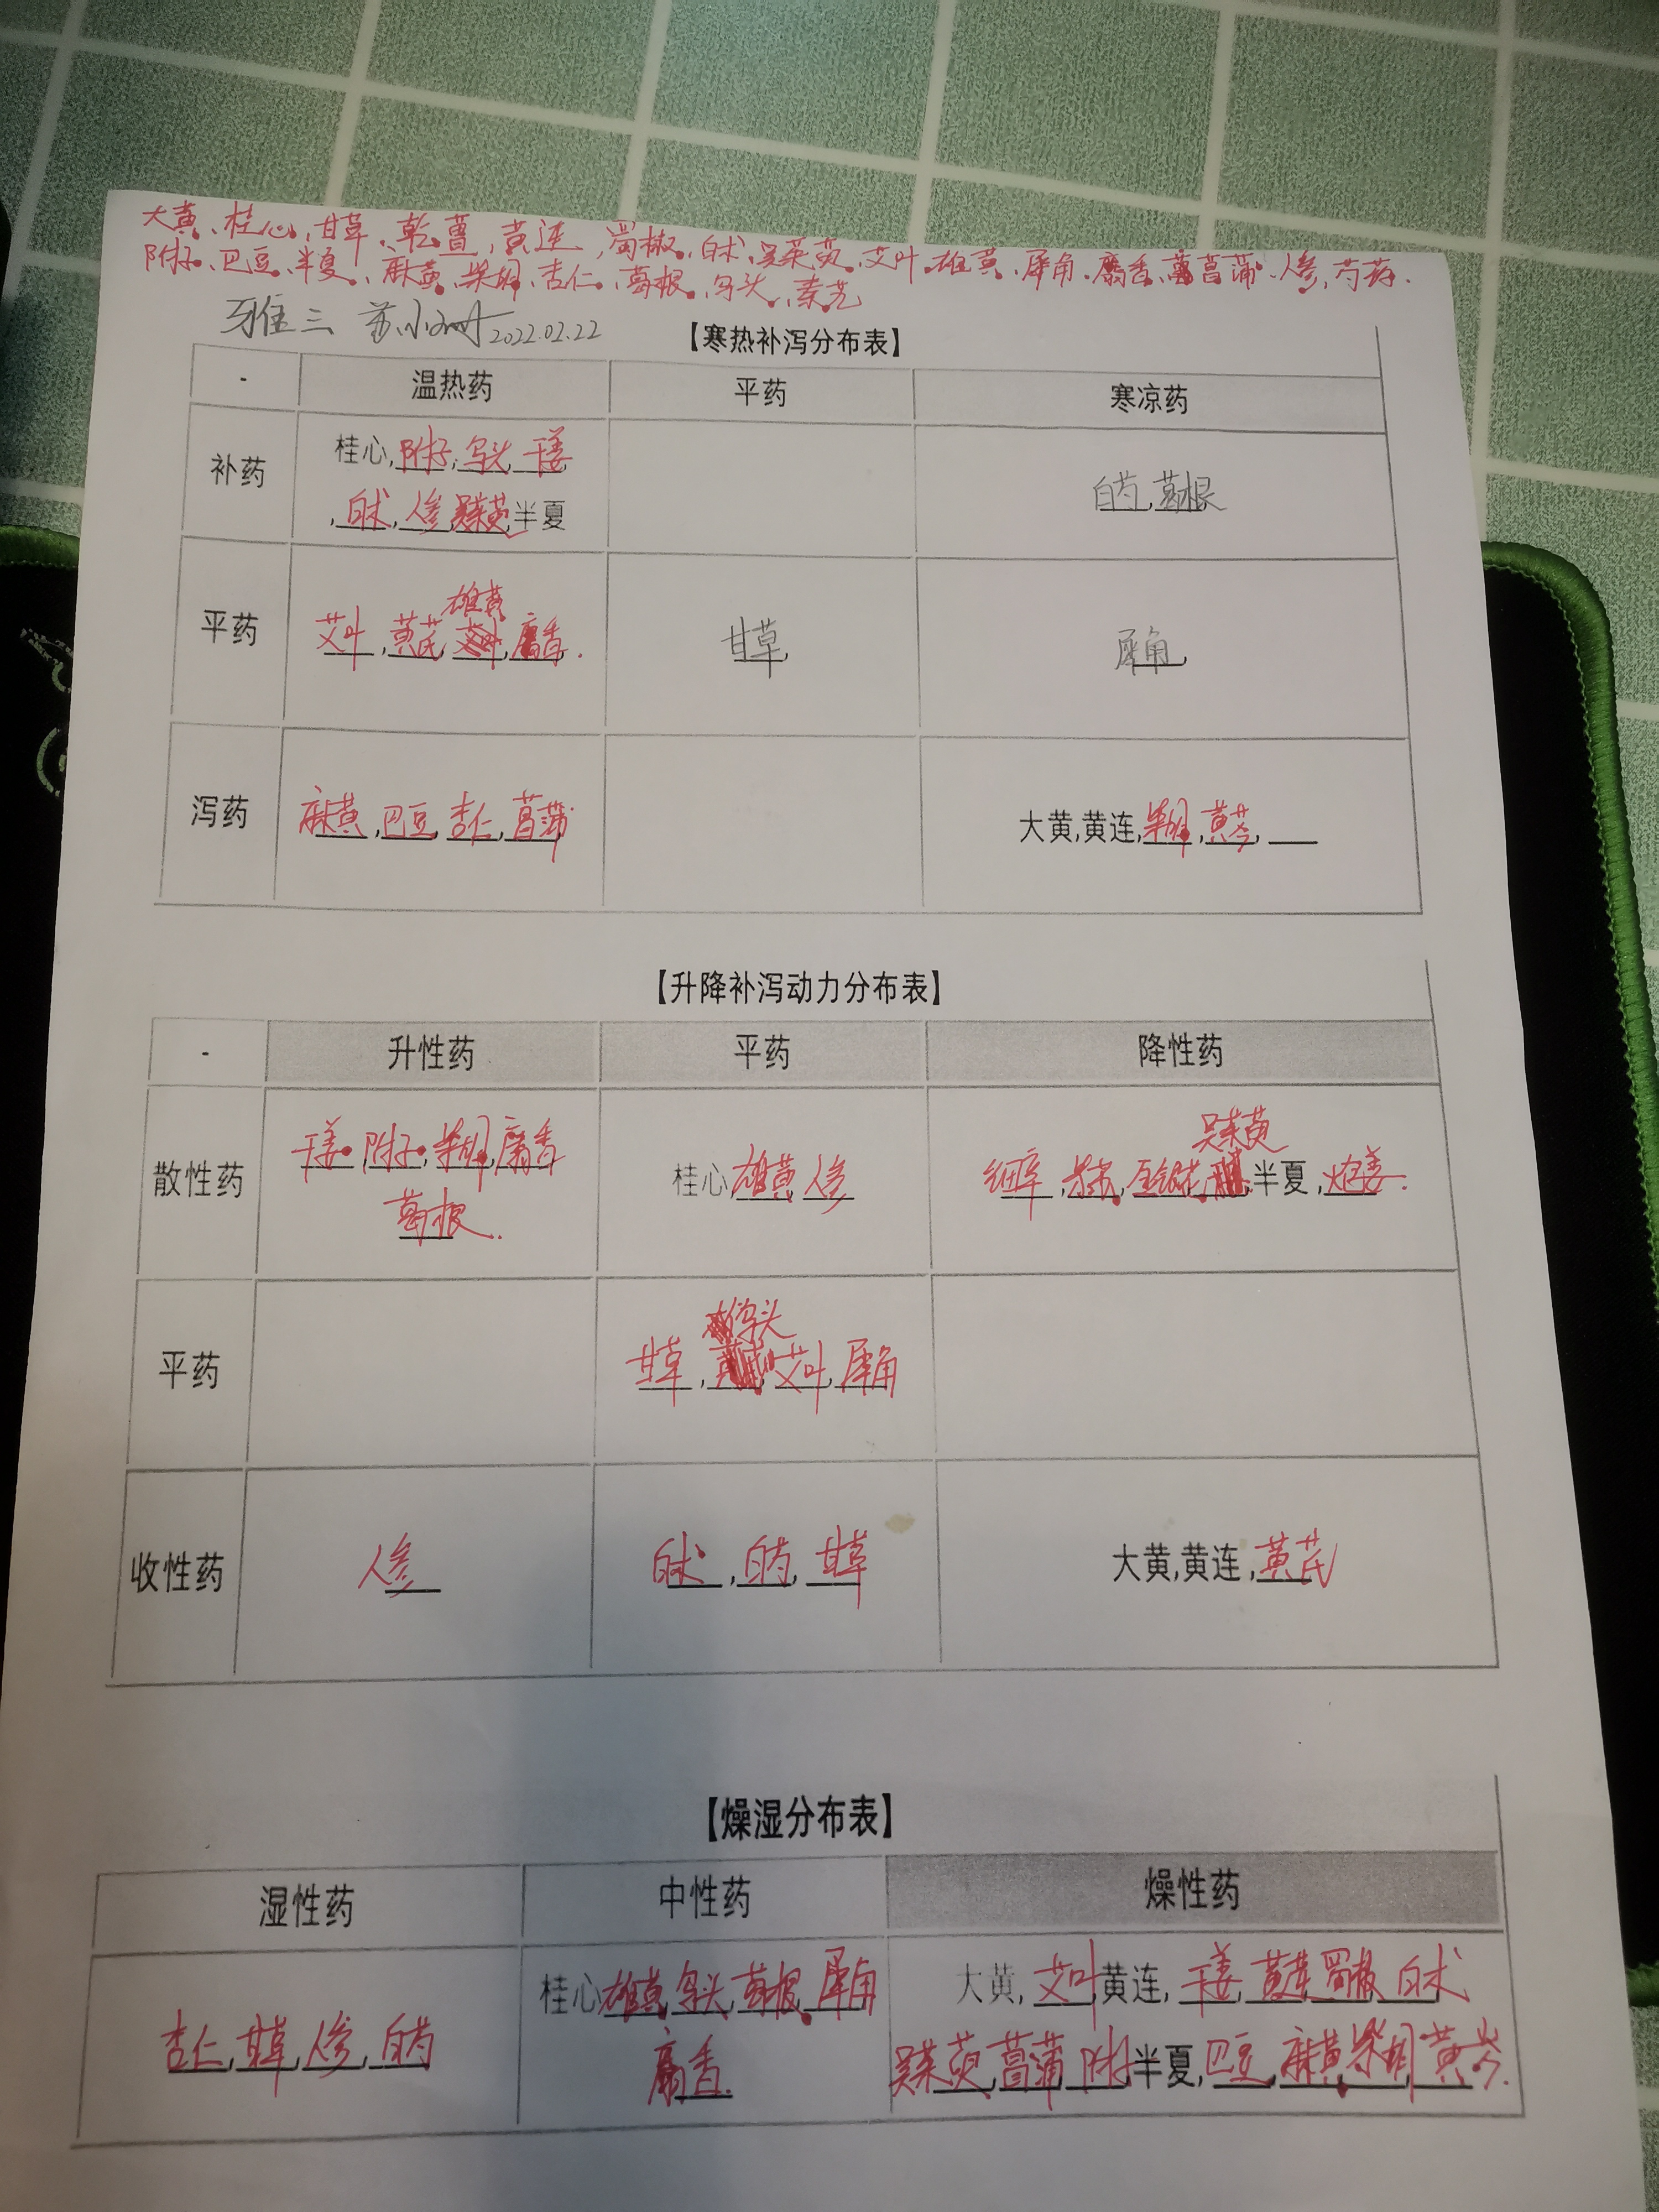 大黄、桂心、甘草、乾薑、黄连、蜀椒、白术、吴茱萸、艾叶、雄黄、犀角、麝香、菖蒲、人参、芍药.
附子、巴豆、半夏、麻黄、柴胡、杏仁、葛根、乌头、秦艽
2022.02.22
【寒热补泻分布表】
- 温热药 平药 寒凉药
补药 桂心,附子,乌头,干姜 白芍,葛根
,白术,人参,吴茱萸,半夏
雄黄
平药 艾叶,黄芪,麝香. 甘草, 犀角,
泻药 麻黄,巴豆,杏仁,菖蒲 大黄,黄连,柴胡,黄芩,
【升降补泻动力分布表】
- 升性药 平药 降性药
吴茱萸
散性药 干姜,附子,柴胡,麝香 桂心,雄黄,人参 细辛,半夏,炮姜.
葛根.
乌头
平药 甘草,艾叶,犀角
收性药 人参 白术,白芍,甘草 大黄,黄连,黄芪
【燥湿分布表】
湿性药 中性药 燥性药
桂心,雄黄,乌头,葛根,犀角 大黄,艾叶,黄连,干姜,蜀椒,白术
杏仁,甘草,人参,白芍 麝香. 吴茱萸,菖蒲,附子,半夏,巴豆,麻黄,柴胡,黄芩.